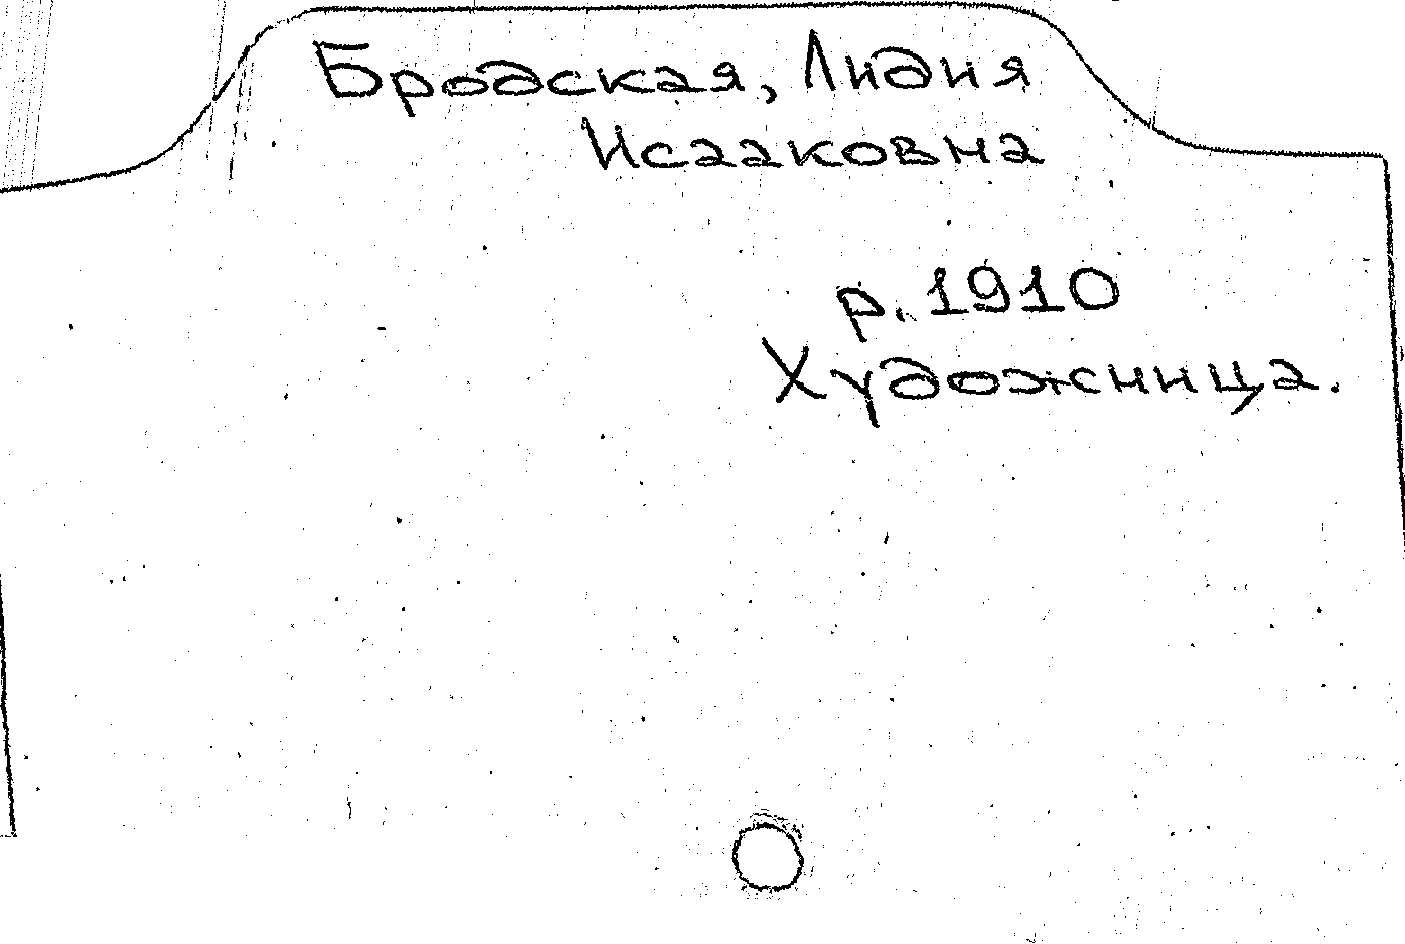 Бродская, Лидия
Исааковна
р. 1910
Художница.